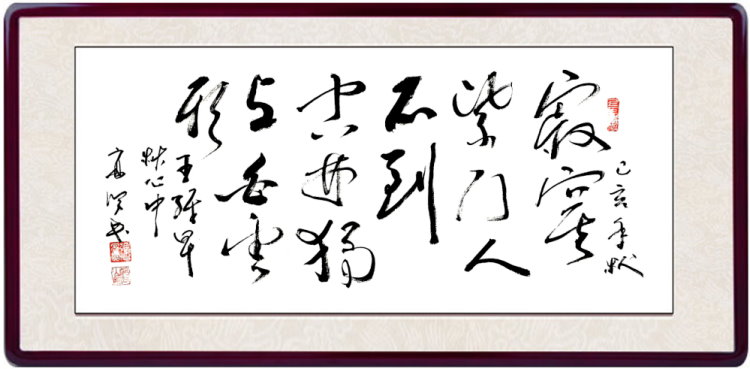 己亥年秋
寂寞
柴门人
不到
空林独
与白云
期
王维早
秋山中
书